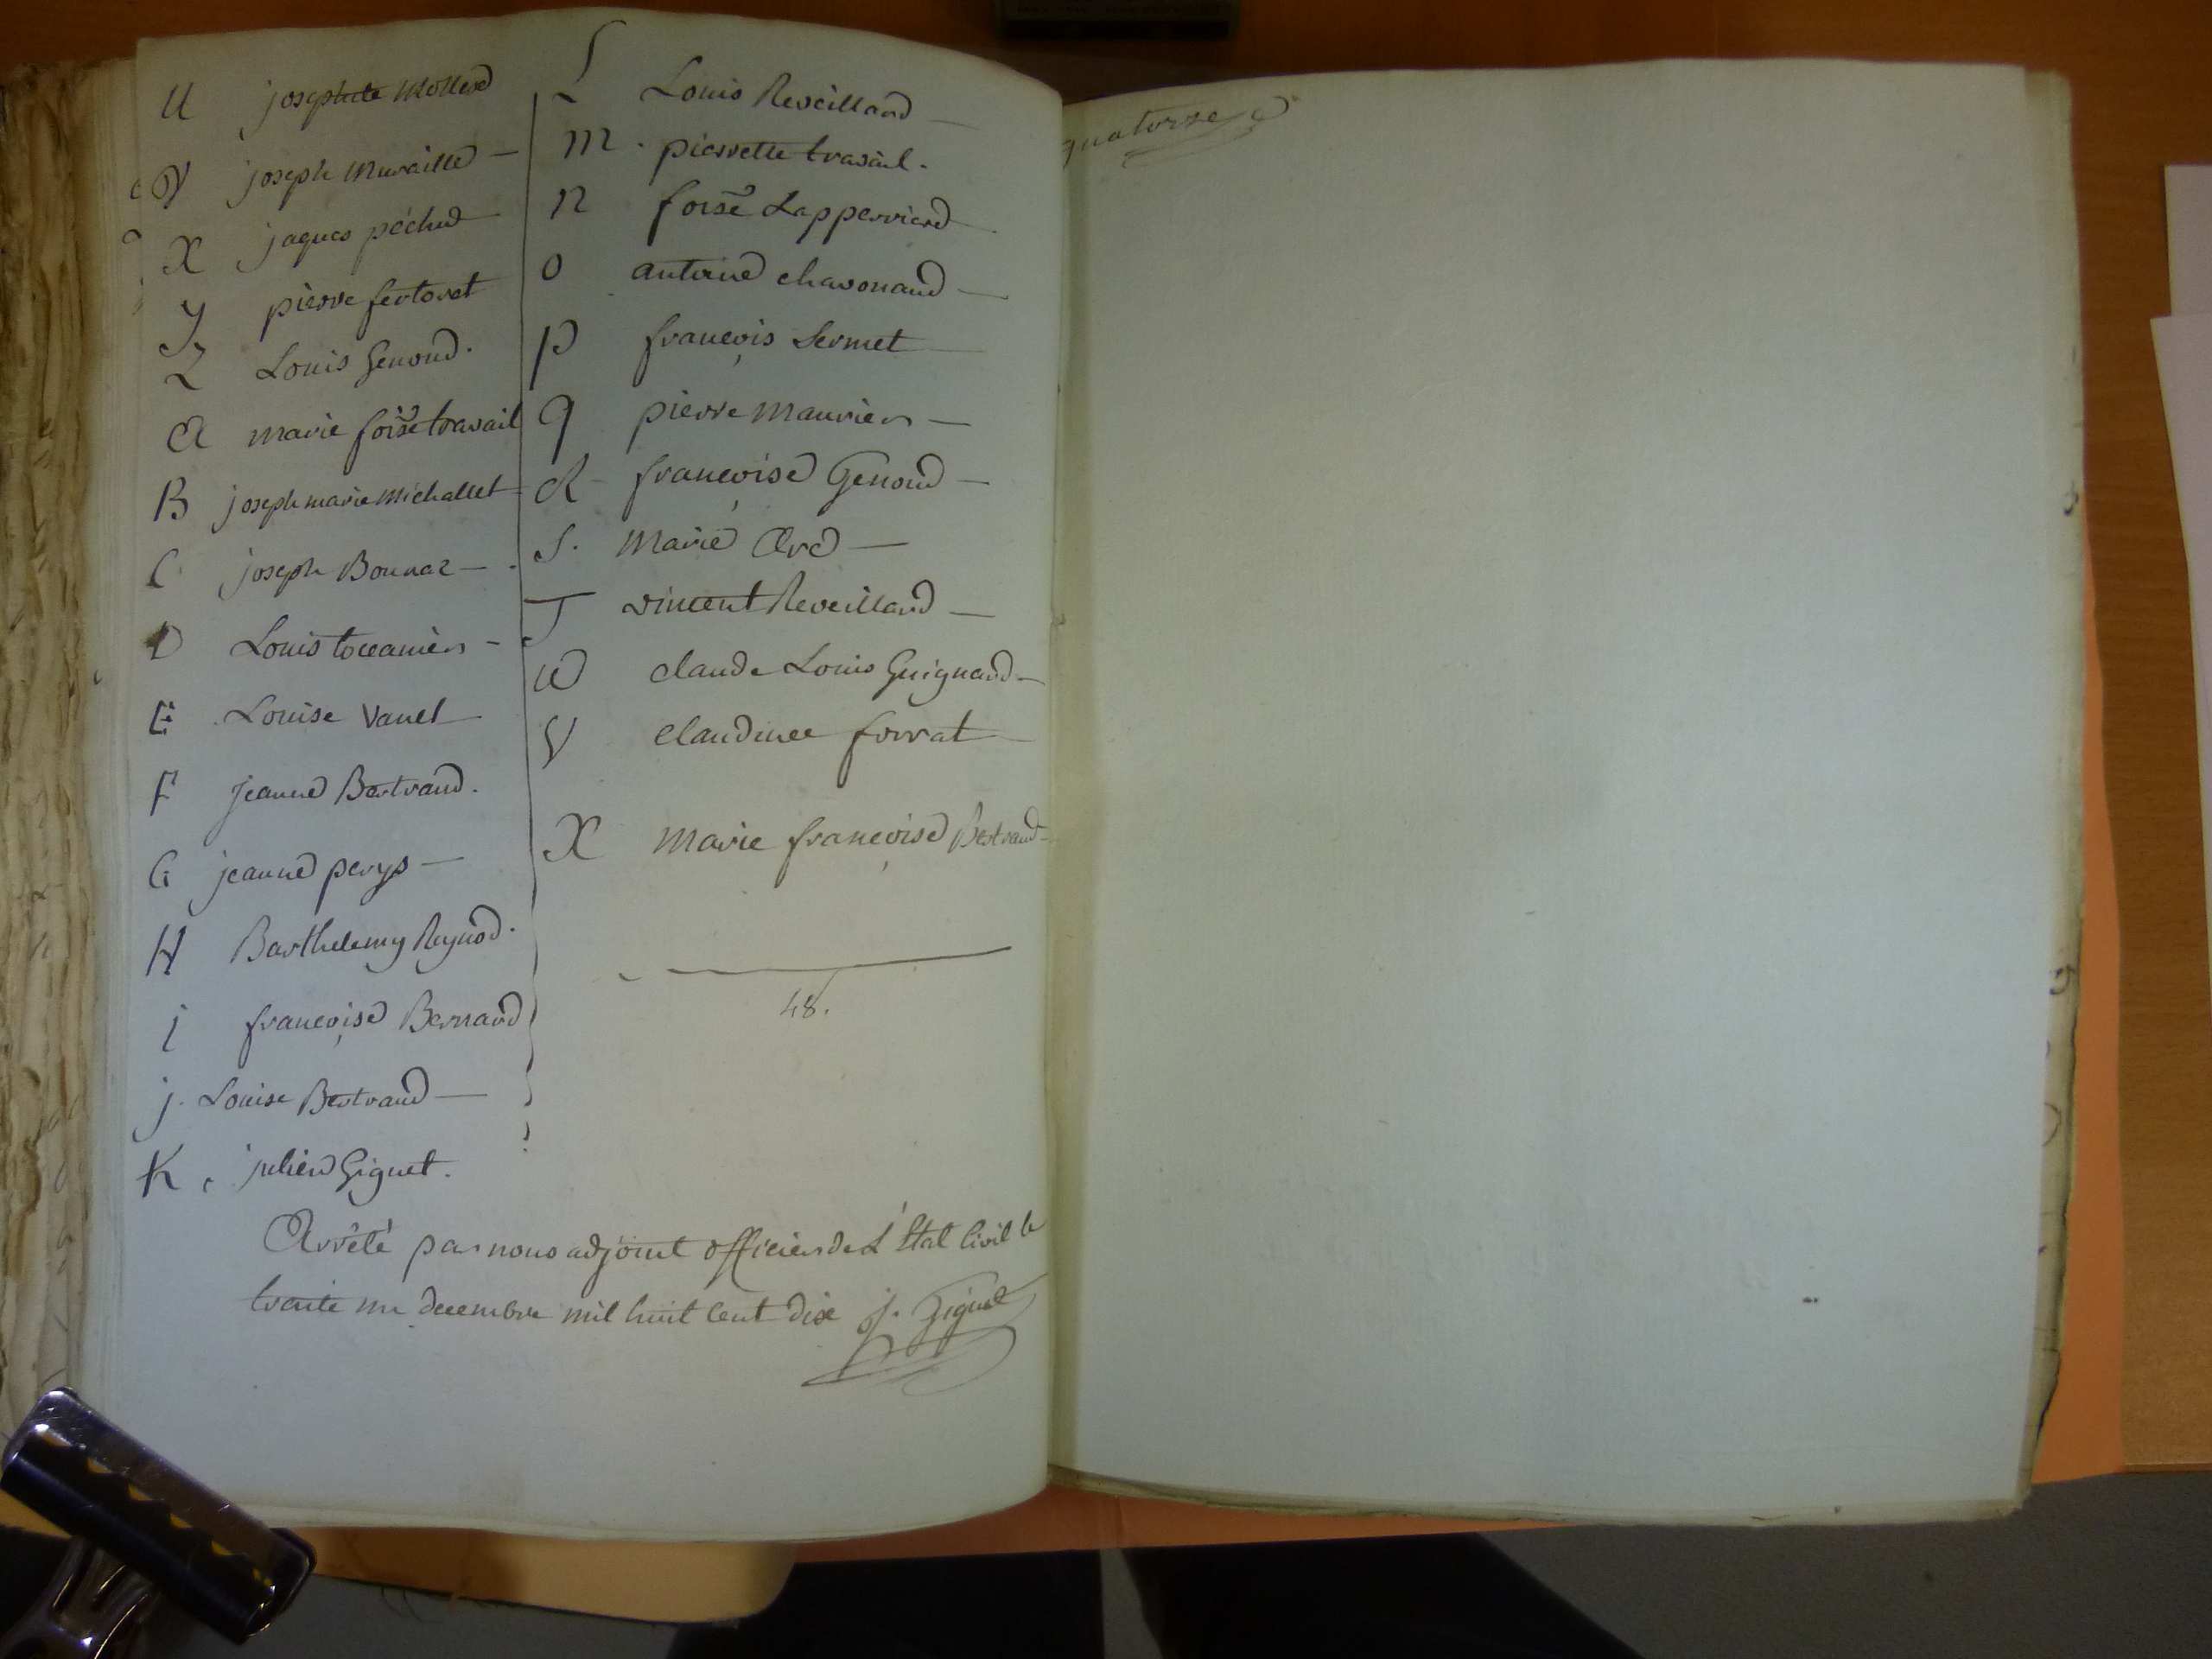 U josephte Mollard
V joseph Muraille —
X jaques péchud
Y pierre fertoret
Z Louis Genoud.
A marie foise travail
B joseph marie Michallet
C joseph Bonnaz —
D Louis toccanier —
E Louise Vanel
F Jeanne Bertrand.
G jeanne perys —
H Barthelemy Reynod.
i françoise Bernard
j. Louise Bertrand —
K julien Giguet.
L Louis Reveillard —
M. pierrette travail.
N foise Lapperriere
O antoine chavonand —
P françois Sermet —
q pierre Maurier —
R françoise Genoud —
S. Marie
T vincent Reveillard —
U claude Louis Guignard —
V Claudinee forrat —
X Marie françoise Bertrand —
48.
Arrêté par nous adjoint officier de L'Etat Civil le
trente un decembre mil huit cent dix j. Giguet
quatorze